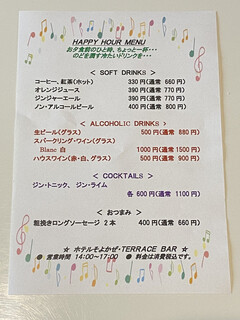 HAPPY HOUR MENU
お夕食前のひと時、ちょっと一杯・・・
のどを潤す冷たいドリンクを・・・
< SOFT DRINKS >
コーヒー、紅茶(ホット) 330円(通常 660円)
オレンジジュース 390円(通常 770円)
ジンジャーエール 390円(通常 770円)
ノン・アルコールビール 400円(通常 800円)
< ALCOHOLIC DRINKS >
生ビール(グラス) 500円(通常 880円)
スパークリング・ワイン(グラス)
Blanc 白 1000円(通常 1500円)
ハウスワイン(赤・白、グラス) 500円(通常 900円)
< COCKTAILS >
ジン・トニック、 ジン・ライム
各 600円(通常 1100円)
< おつまみ >
粗挽きロングソーセージ 2本 400円(通常 660円)
☆ ホテルそよかぜ・TERRACE BAR ☆
● 営業時間 14:00~17:00 ● 料金は消費税込です。